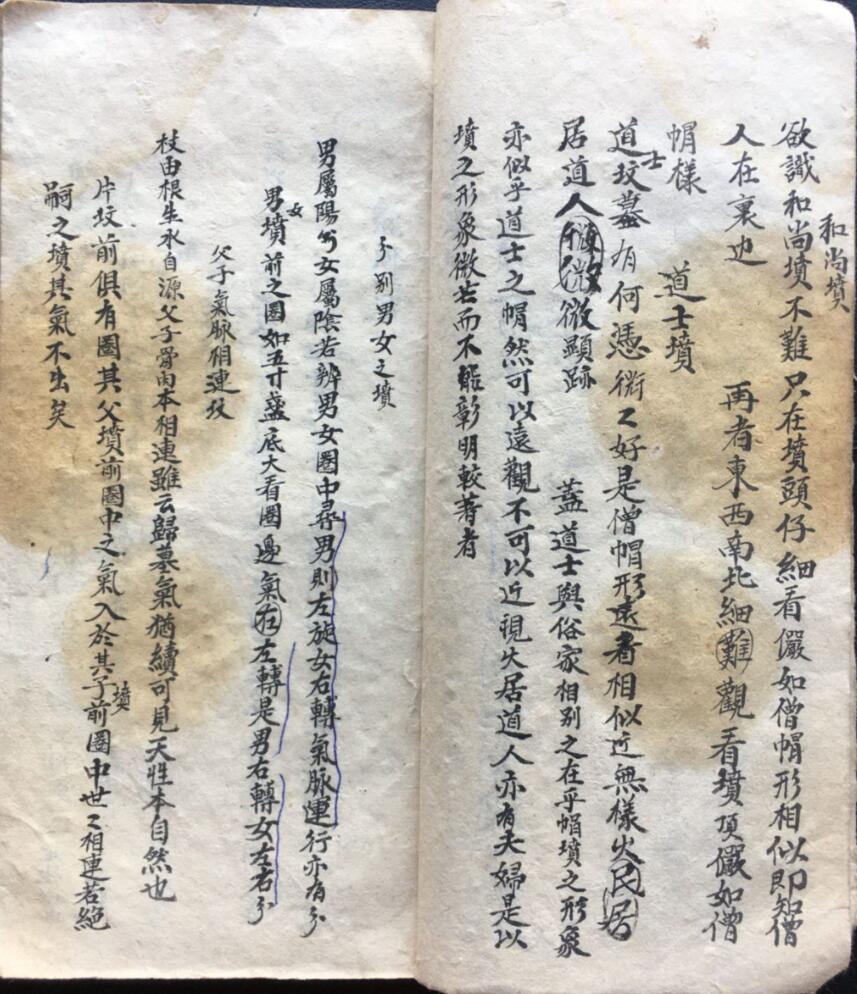 和尚墳
欲識和尚墳不難只在墳頭仔細看儼如僧帽形相似即知僧
人在裏也　再者東西南北細難觀看墳頂儼如僧
帽樣
道士墳
道士坟墓有何憑衍々好是僧帽形遠看相似近無樣火民居
居道人微微微顯跡　蓋道士與俗家相别之在乎帽墳之形象
亦似乎道士之帽然可以遠觀不可以近視火居道人亦有夫婦是以
墳之形象微茫而不能彰明較著者
分别男女之墳
男屬陽兮女屬陰若辨男女圈中尋男則左旋女右轉氣脉運行亦有分
男女墳前之圈如五寸盞底大看圈邊氣右左轉是男右轉女左右分
父子氣脉相連坟
枝由根生水自源父子骨肉本相連雖云歸墓氣猶續可見天性本自然也
片坟前俱有圈其父墳前圈中之氣入於其子墳前圈中世々相連若絕
嗣之墳其氣不出矣